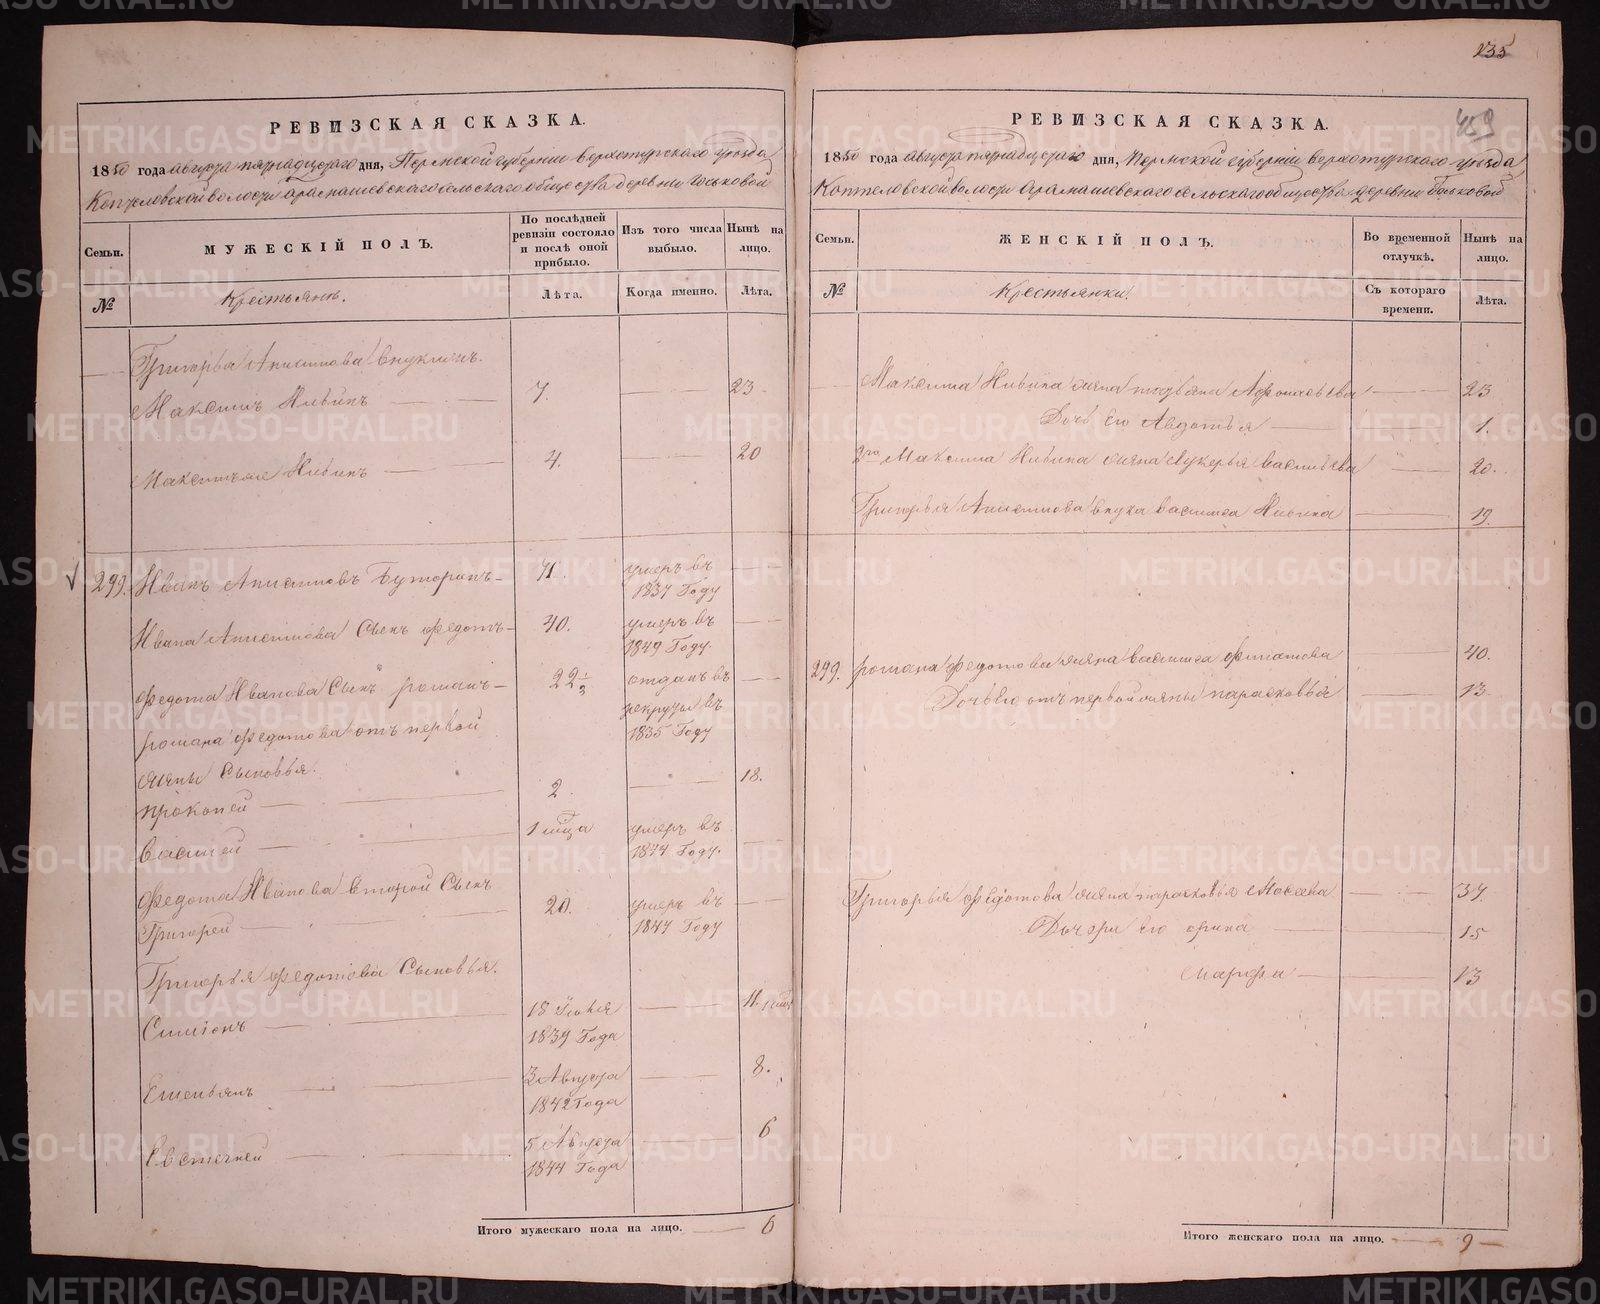 135
459
РЕВИЗСКАЯ СКАЗКА.
1850 года августа пятнадцатаго дня, Пермской губернiи верхотурскаго уезда
Коптеловской волости Арамашевскаго сельскаго общества деревни Таськовой
Семьи.
МУЖЕСКIЙ ПОЛЪ.
По послѣдней ревизiи состояло и послѣ оной прибыло.
Изъ того числа выбыло.
Нынѣ на лицо.
№
Крестьянъ.
Лѣта.
Когда именно.
Лѣта.
Григорья Анисимова внуки
Максимъ 7. 23
4. 20
299. Иванъ Анисимовъ Буторинъ 71. умеръ въ
1837 Году
Ивана Анисимова Сынъ Федотъ 40. умеръ въ
1849 Году.
Федота Иванова Сынъ романъ 22 1/2 отданъ въ
рекруты въ
1835 Году
романа Федотова отъ первой
жены Сыновья.
прокопей 2 18.
василей 1 мца умеръ въ
1844 Году.
Федота Иванова второй Сынъ
Григорей 20. умеръ въ
1847 Году
Григорья Федотова Сыновья.
Симiонъ 15 Июля
1839 Года 11.
Емельянъ 3 Августа
1842 Года 8.
Евстигней 5 Августа
1844 Года 6
Итого мужескаго пола на лицо. 6
РЕВИЗСКАЯ СКАЗКА.
1850 года августа пятнадцатаго дня, пермской губернiи верхотурскаго уезда
Коптеловской волости Арамашевскаго сельскаго общества деревни Таськовой
Семьи.
ЖЕНСКIЙ ПОЛЪ.
Во временной отлучкѣ.
Нынѣ на лицо.
№
Крестьянки.
Съ котораго времени.
Лѣта.
Максима жена Афонасьева 23
Дочь его Авдотья 1.
Максима жена лукерья васильева 20.
Григорья Анисимова внука василиса 19.
299. романа Федотова жена василиса филатова 40.
Дочь его отъ первой жены парасковья 13
Григорья Федотова жена парасковья Мосеева 37
Дочери его орина 15
марфа 13
Итого женскаго пола на лицо. 9
METRIKI.GASO-URAL.RU